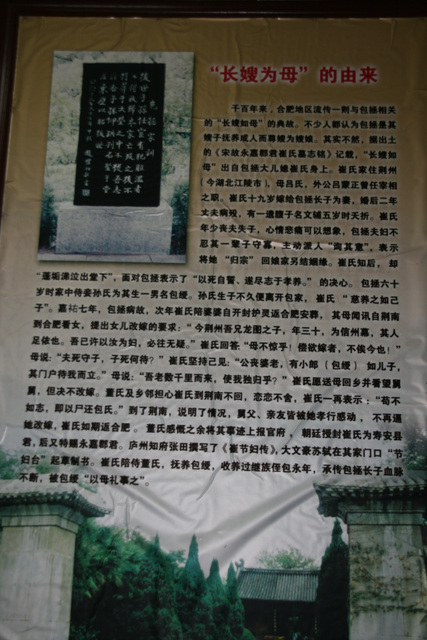 “长嫂为母”的由来
千百年来，合肥地区流传一则与包拯相关
的“长嫂如母”的典故。不少人都认为包拯是其
嫂子抚养成人而尊嫂为嫂娘。其实不然，据出土
的《宋故永嘉郡君崔氏墓志铭》记载，“长嫂如
母”出自包拯大儿媳崔氏身上。崔氏家住荆州
（今湖北江陵市），母吕氏，外公吕蒙正曾任宰相
之职。崔氏十九岁嫁给包拯长子为妻，婚后二年
丈夫病殁，有一遗腹子名文辅五岁时夭折。崔氏
年少丧夫失子，心情悲痛可以想象，包拯夫妇不
忍其一辈子守寡，主动派人“询其意”，表示
将她“归宗”回娘家另结姻缘。崔氏知后，却
“蓬垢涕泣出堂下”，面对包拯表示了“以死自誓、遂尽志于孝养。”的决心。包拯六十
岁时家中侍妾孙氏为其生一男名包绶。孙氏生子不久便离开包家，崔氏“慈养之如己
子”。嘉祐七年，包拯病故，次年崔氏陪婆婆自开封护灵运合肥安葬，其母闻讯自荆南
到合肥看女，提出女儿改嫁的要求：“今荆州吾兄龙图之子，年三十，为信州幕，其人
足依也。吾已许以汝为妇，必往无疑。”崔氏回答“母不惊乎！倘欲嫁者，不俟今也！”
母说：“夫死守子，子死何待？”崔氏坚持己见：“公丧婆老，有小郎（包绶）如儿子，
其门户待我而立。”母说：“吾老数千里而来，使我独归乎？”崔氏愿送母回乡并看望舅
舅，但决不改嫁。董氏及乡邻担心崔氏到荆南不回，恋恋不舍，崔氏一再表示：“苟不
如志，即以尸还包氏。”到了荆南，说明了情况，舅父、亲友皆被她孝行感动，不再逼
她改嫁，崔氏如期返合肥。董氏感慨之余将其事迹上报官府，朝廷授封崔氏为寿安县
君，后又特赐永嘉郡君。庐州知府张田撰写了《崔节妇传》，大文豪苏轼在其家门口“节
妇台”起草制书。崔氏陪侍董氏，抚养包绶，收养过继族侄包永年，承传包拯长子血脉
不断，被包绶“以母礼事之”。
包拯家训